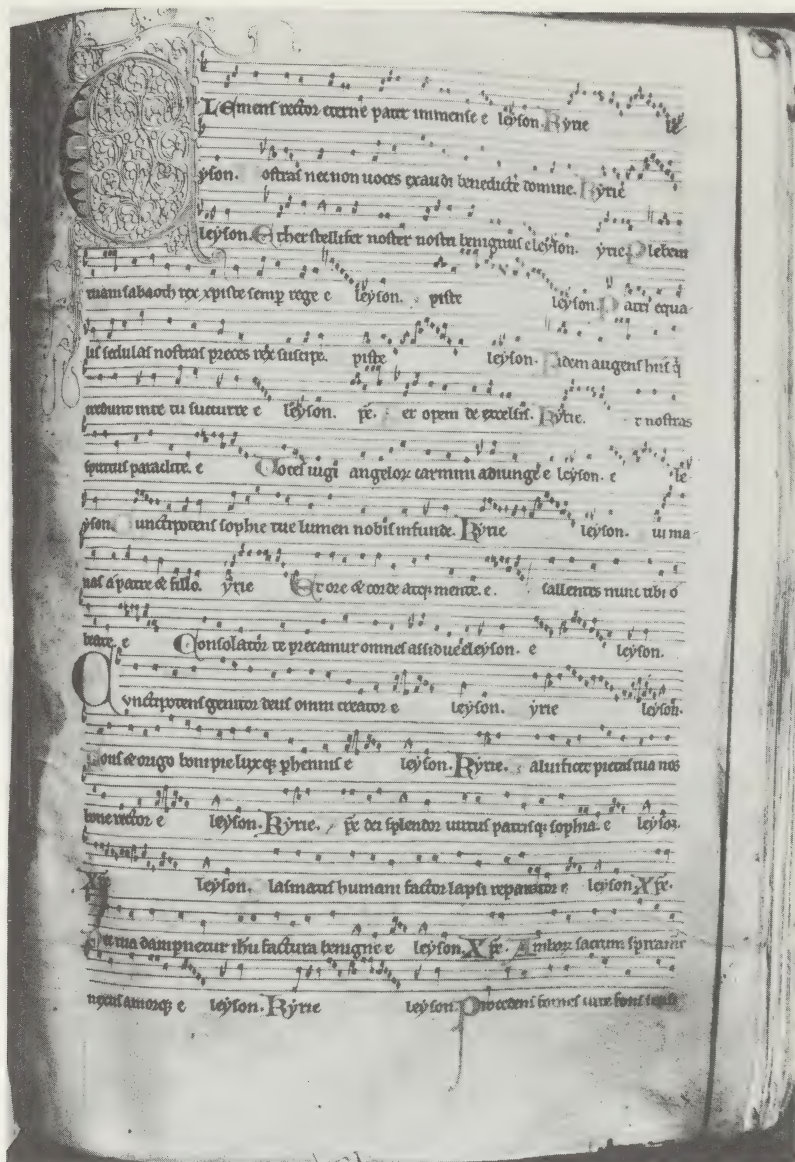 LEmens rector eterne pater immense e leyson. Kyrie le
yson. ostras nec non uoces exaudi benedicte domine. Kyrie
leyson. Ether stellifer noster nostri benignus eleyson. yrie Plebem
tuam sabaoth rex xpiste semp rege e leyson. piste leyson. Patri equa
lis sedulas nostras preces rex suscipe. piste leyson. Fidem augens his q
credunt in te tu succurre e leyson. pe. et opem de excelsis. Kyrie. t nostras
spiritus paraclite. e Uoces iugi angeloꝝ carmini adiunge e leyson. e le
yson. Cunctipotens sophie tue lumen nobis infunde. Kyrie leyson. ui ma
nas a patre & filio. yrie Et ore & corde atq; mente. e. sallentes nunc tibi o
beate. e Consolator te precamur omnes assidue eleyson. e leyson.
Cunctipotens genitor deus omni creator e leyson. yrie leyson.
Fons & origo boni pie luxq; phennis e leyson. Kyrie. aluificet pietas tua nos
bone rector e leyson. Kyrie. pe dei splendor uirtus patrisq; sophia. e leyson.
Xpe leyson. lasmatis humani factor lapsi reparator e leyson Xpe.
Ne tua dampnetur ihu factura benigne e leyson. Xpe. Amboꝝ sacrum spiramen
nexus amorq; e leyson. Kyrie leyson. Procedens fomes uite fons